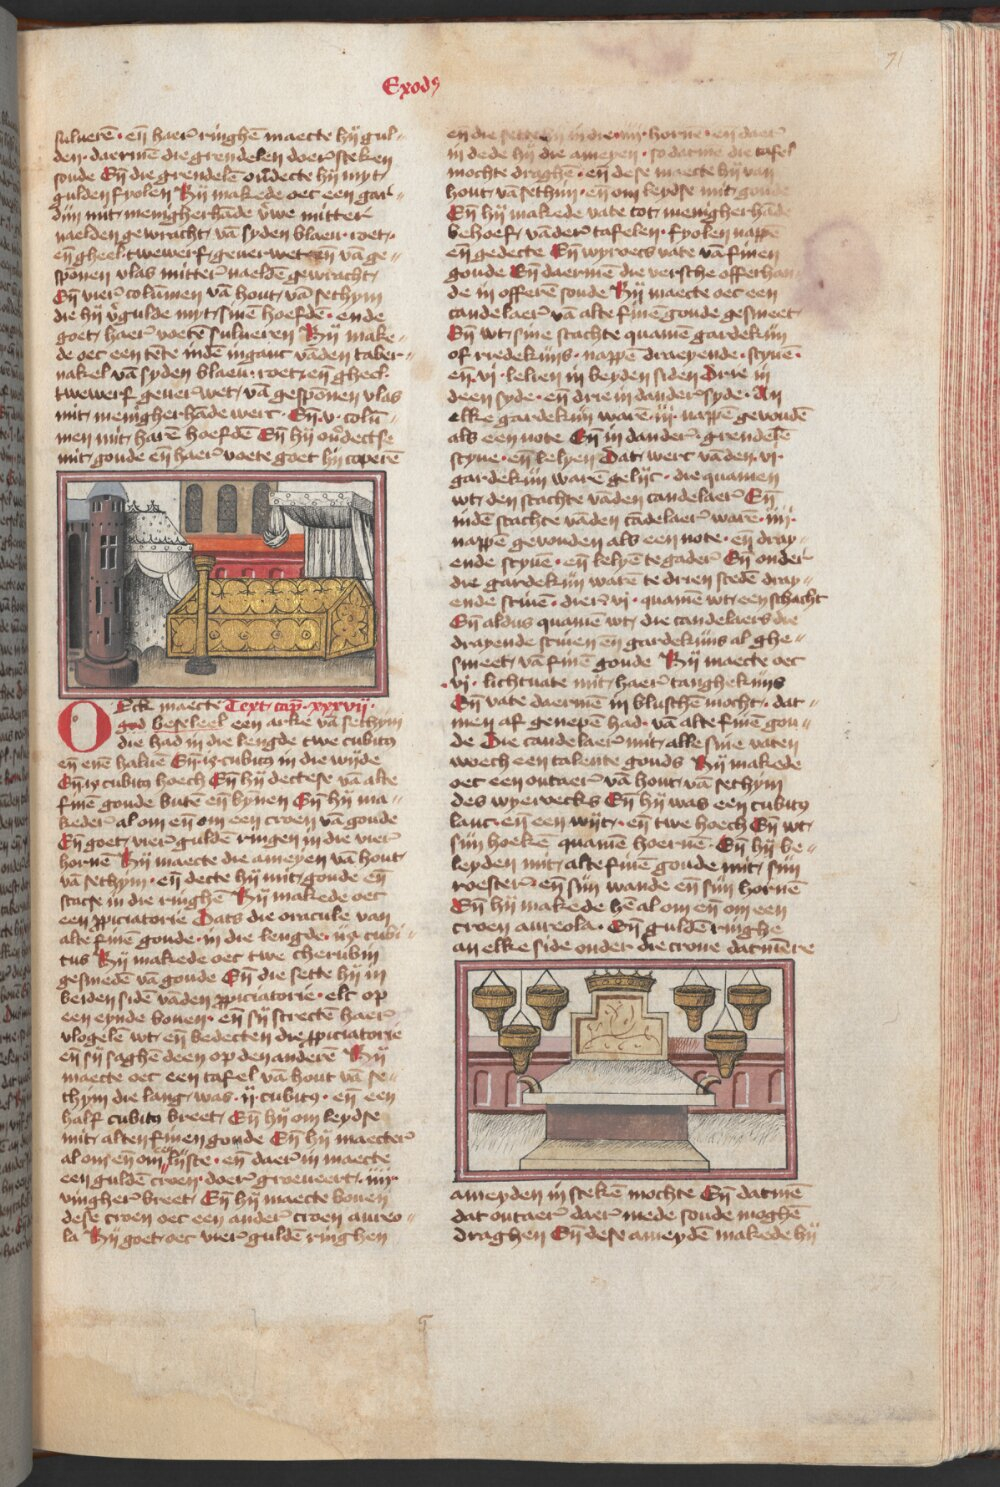 Exodꝰ
71
suluerē · en̄ haer ringhē maecte hij gul-
den · daermē die grendelen doer steken
soude En̄ die grendelē ouˀdecte hij myt
gulden fyolen Hij makede oec een gar-
dijn mit menigherhāde vwe mitter
naelden gewracht vā syden blaeu · roet ·
en̄ gheel · twewerf geuerwet en vā ge-
sponen vlas mitter naeldē gewracht
En̄ vier colūmen vā hout vā sethym
die hij vˀgulde myt sinē hoefdē · ende
goet haer voetē suluerен Hij make-
de oec een tēte indē inganc vāden taber-
nakel vā syden blaeu · roet en̄ gheel ·
twewerf geuerwet vā gesponen vlas
mit menigherhāde werc · En̄ · v · colū-
men mit harē hoefdē En̄ hij ouˀdectse
mit goude en̄ haer voete goet hij coperē
OEck maecte Text cap̄ · xxxvij ·
god beseleel een arke vā sethym
die had in die lengde twe cubitꝰ
en̄ enē haluē En̄ · iꝫ cubitꝰ in die wijde
En̄ · iꝫ cubitꝰ hoech En̄ hij dectese vā alte
finē goude butē en̄ bynen En̄ hij ma-
keder al om en̄ om een croen vā goude
En̄ goet vier guldē ringen in die vier
hornē Hij maecte die ameyen vā hout
vā sethym · en̄ decte hij mit goude en̄
stacse in die ringhē Hij makede oec
een ꝓpiciatorie Dats die oracule van
alte finē goude · in die lengde · ijꝫ cubi-
tus Hij makede oec twe cherubin
gesmedē vā goude En̄ die sette hij in
beiden sidē vāden ꝓpiciatorie · elc op
een eynde bouen · en̄ sij strectē haer
vlogele wt en̄ bedecten die ꝓpiciatorie
en̄ sij saghē deen op den andere Hij
maecte oec een tafel vā hout vā se-
thym die lang was · ij · cubitꝰ · en̄ een
half cubitꝰ breet En̄ hij om leydse
mit alten finen goude En̄ hij maecter
al om en̄ om lijste · en̄ daer in maecte
een guldē croen doer groeueert · iiij ·
vingher breet En̄ hij maecte bouen
dese croen oec een ander croen aureo-
la Hij goet oec vier guldē ringhen
en die sette hij in die · iiij · hornē · en daer
in dede hij die ameyen · so datmē die tafel
mochte draghē · en̄ dese maecte hij van
hout vā sethim · en̄ om leydse mit goude
En̄ hij makede vate tot menigherhāde
behoef vāder tafelen · fyolen nappē
en̄ gedecte En̄ wyroecs vate vā finen
goude En̄ daermē die versche offerhan-
de in offerē soude Hij maecte oec een
candelaer vā alte finē goude gesmeet
En̄ wt sine stachte quamē gardekijn
of riedekijns · nappē draeyende · styuē ·
en̄ · vi · lelien in beyden siden Drie in
deen syde · en̄ drie in dander syde · An
elke gardekijn warē · iij · nappē gevoudē
als een note En̄ in dander · grendelē
styue · en̄ lelyen Dat werc vāden · vi ·
gardekijn warē gelijc · die quamen
wt den stachte vāden candelaer En̄
indē stachte vāden cādelaer warē · iiij ·
nappē gevouden als een note · en̄ dray-
ende styuē · en̄ lelyē te gader En̄ onder
die gardekijn warē te drien stedē dray-
ende stiuē · dier · vi · quamē wt een schacht
En̄ aldus quamē wt die candelaers die
drayende stiuen en̄ gardekijns al ghe-
smeet vā finē goude Hij maecte oec
· vi · lichtuate mit haer tanghekijns
En̄ vate daermē in bluschē mocht · dat
men af genepē had · vā alte finē gou-
de Die candelaer mit alle sine vaten
woech een talente gouds Hij makede
oec een outaer vā hout vā sethym
des wyeroecks En̄ hij was een cubitꝰ
lanc · en̄ een wijt · en̄ twe hoech En̄ wt
sijn hoekē quamē hoernē · En̄ hij be-
leyden mit alte finē goude mit sijn
roester en̄ sijn wande en̄ sijn hornē
En̄ hij makede hē al om en̄ om een
croen aureola · En̄ guldē ringhe
an elke side onder die crone datmē re
ameyden in stekē mochte En̄ datmē
dat outaer daer mede soude moghē
draghen En̄ dese ameydē makede hij